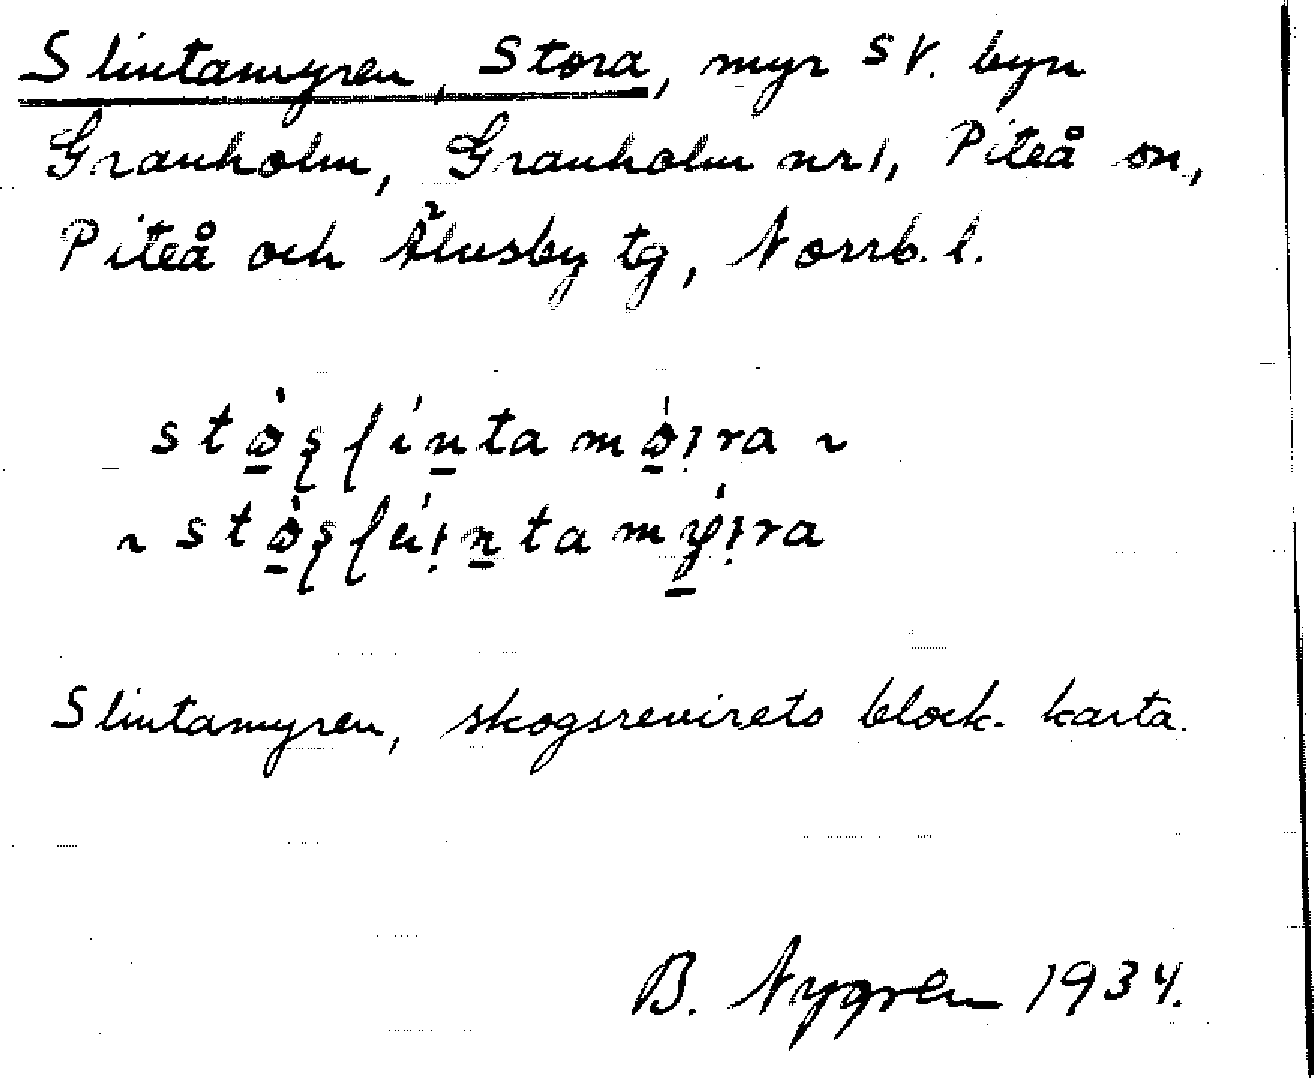 Slintamyren, Stora, myr SV. byn
Granholm, Granholm nr 1, Piteå sn,
Piteå och Älvsby tg, Norrb. l.
Slintamyren, skogsrevirets block. karta.
B. Nygren 1934.